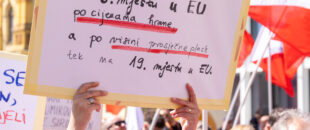 5. mjestu u EU
po cijenama hrane
a po visini prosječne plaće
tek na 19. mjestu u EU
SE
ON,
JELI